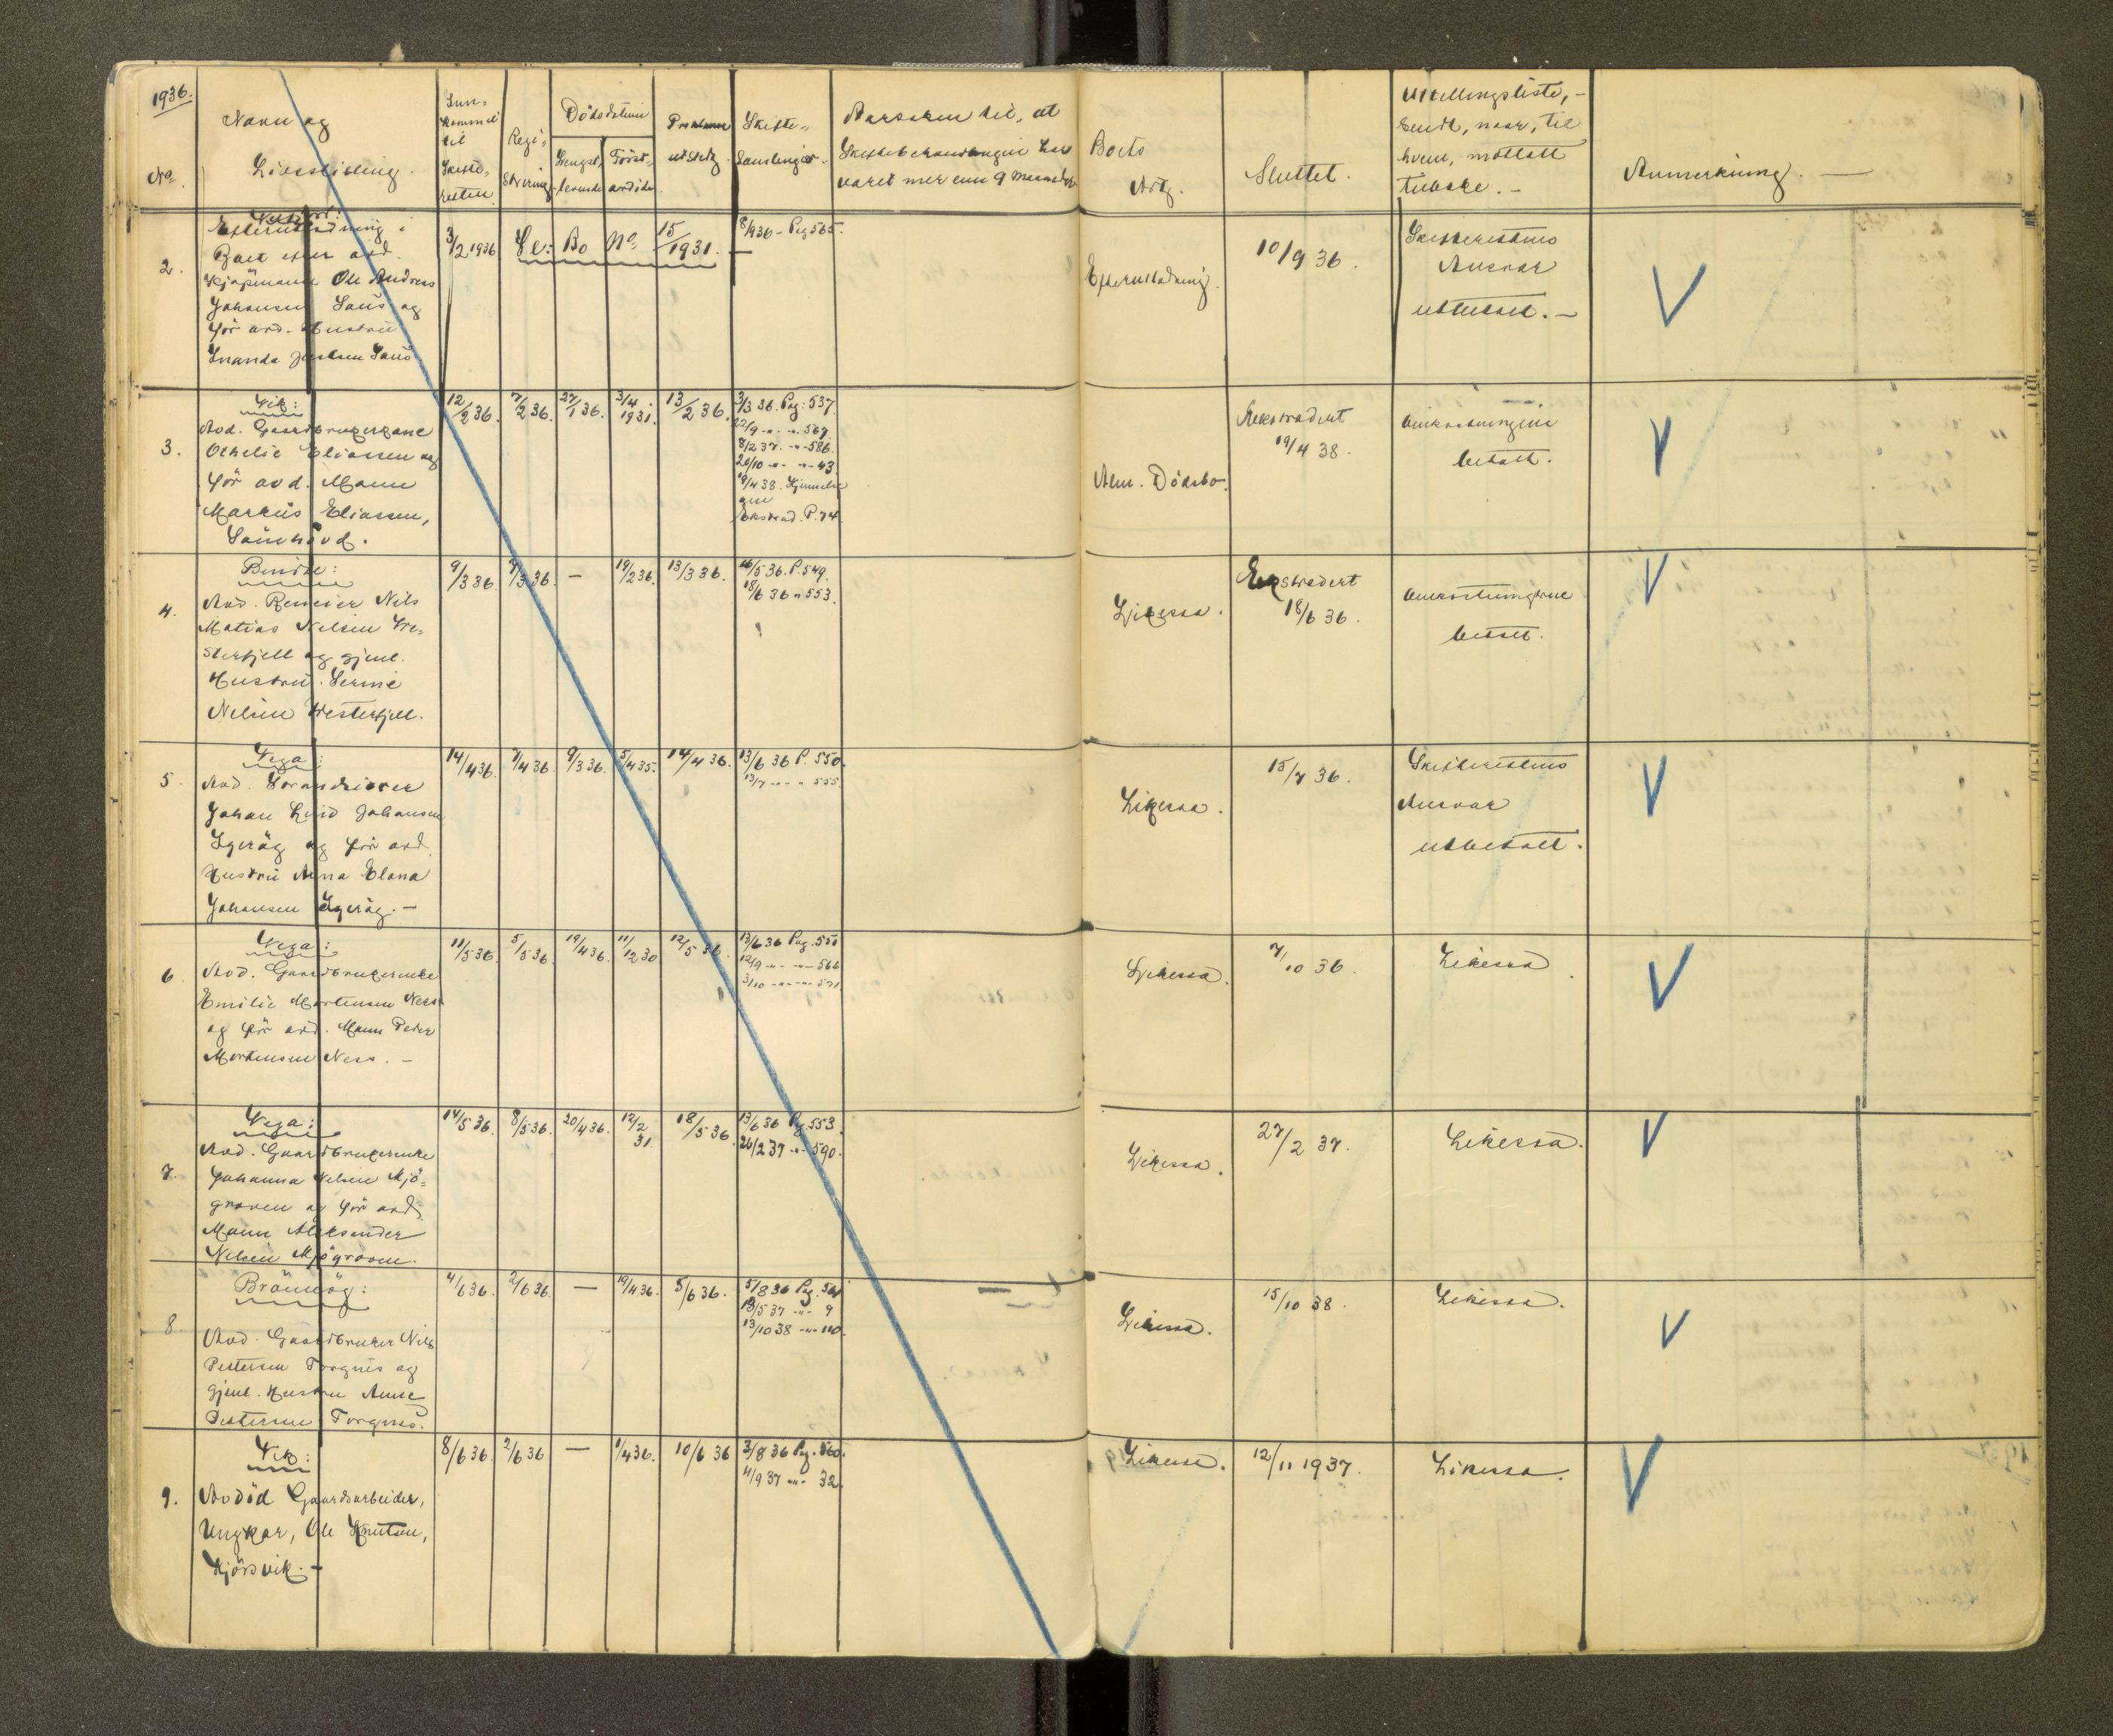 1936.
No.
Navn og
Livsstilling.
Inn-
kommet
til
Skifte-
retten
Regi-
strering
Dödsdatum
Lengst-
levende
Först-
avdöde
Proklama
utstedt
Skifte-
Samlinger.
Aarsaken til, at
Skiftebehandlingen har
varet mer enn 9 maaneder
Boets
Art.
Sluttet.
Utdellingsliste, -
sendt, naar, til
hvem, mottatt
tilbake. -
Anmerkning. —
2.
Efterutlodning i
Boet efter avd.
Kjöpmann Ole Andreas
Johansen Saus og
för avd. Hustru
3/2 1936
Se: Bo No. 15/1931. —
8/9 36 - Pag 565.
Efterutlodning.
10/9 36.
Skifterettens
Ansvar
utbetalt. -
3.
Vik:
Avd. Gaardbrukerkone
Othelie Eliassen og
för avd. Mann
Markus Eliassen,
12/2 36.
7/2 36.
27/1 36.
3/4 1931.
13/2 36.
3/3 36. Pag: 537.
22/9 -"- -"- 567.
8/2 37. -"- 586.
20/10 -"- -"- 43.
19/4 38.
Ekstrad. P. 74.
Alm. Dödsbo.
Ekstradert
19/4 38.
Omkostningene
betalt.
4.
Bindal:
Avd. Rentier Nils
Matias Nilsen Ve-
sterfjell og gjenl.
Hustru Serine
Nilsen Vesterfjell.
9/3 36
7/3 36.
—
19/2 36.
13/3 36.
16/5 36. P. 549.
18/6 36 " 553.
Likessaa.
Ekstradert
18/6 36.
Omkostningene
betalt.
5.
Vega:
Johan Johansen
og för avd.
Hustru Anna Elena
Johansen
14/4 36.
7/4 36.
9/3 36.
5/4 35.
14/4 36.
13/6 36 P. 550.
13/7 -"- " 555.
Likessaa.
15/7 36.
Skifterettens
Ansvar
utbetalt.
6.
Vega:
Avd. Gaardbrukerenke
Emilie Mortensen Ness
og för avd. Mann Peder
Mortensen Ness. -
11/5 36.
5/5 36.
19/4 36.
11/12 30
12/5 36.
13/6 36 Pag. 551
12/9 -"- -"- 566
3/10 -"- -"- 571.
Likessaa.
7/10 36.
Likessaa.
7.
Vega:
Avd. Gaardbrukerenke
Johanna Nilsen Mjö-
graven og för avd.
Mann Aleksander
Nilsen Mjögraven.
14/5 36.
8/5 36.
20/4 36.
12/2 31.
18/5 36.
13/6 36 Pag 553.
26/2 37 -"- 590.
Likessaa.
27/2 37.
Likessaa.
8.
Brönnöy:
Avd. Gaardbruker Nils
Pettersen Torgnes og
gjenl. Hustru Anne
Pettersen Torgnes.
4/6 36.
2/6 36.
—
19/4 36.
5/6 36.
5/8 36 Pag. 561
19/5 37 -"- 9
13/10 38 -"- 110.
Likessaa.
15/10 38.
Likessaa.
9.
Vik:
Avdöd Gaardsarbeider,
Ungkar, Ole Knutsen,
Kjörsvik. -
8/6 36.
2/6 36
—
1/4 36.
10/6 36
3/8 36 Pag. 560.
11/9 37 -"- 32.
Likessaa.
12/11 1937.
Likessaa.